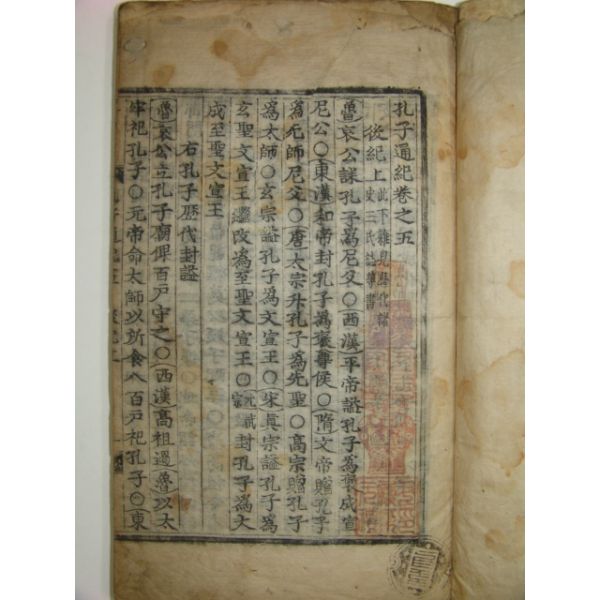 孔子通紀卷之五
後紀上 此下雜見歷代諸
史三氏誌等書
魯哀公誄孔子爲尼父○西漢平帝謚孔子爲褒成宣
尼公○東漢和帝封孔子爲褒尊侯○隋文帝贈孔子
爲先師尼父○唐太宗升孔子爲先聖○高宗贈孔子
爲太師○玄宗謚孔子爲文宣王○宋眞宗謚孔子
玄聖文宣王繼改爲至聖文宣王○元武宗封孔子爲大
成至聖文宣王
右孔子歷代封謚
魯哀公立孔子廟俾百戶守之○西漢高祖過魯以太
牢祀孔子○元帝命太師以所食八百戶祀孔子○東